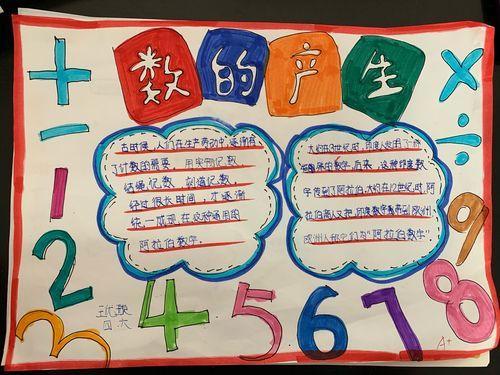 数的产生
+
−
1
2
3
4
5
6
7
8
9
×
÷
古时候,人们在生产劳动中逐渐有
了计数的需要,用实物记数、
结绳记数、刻道记数,
经过很长时间,才逐渐
统一成现在这种通用的
阿拉伯数字。
大约在3世纪时,印度人发明了一种
数字。后来,这种印度数
字传到了阿拉伯,大约在12世纪时,阿
拉伯商人又把印度数字传到欧洲,
欧洲人称它们为“阿拉伯数字”。
四六
A+